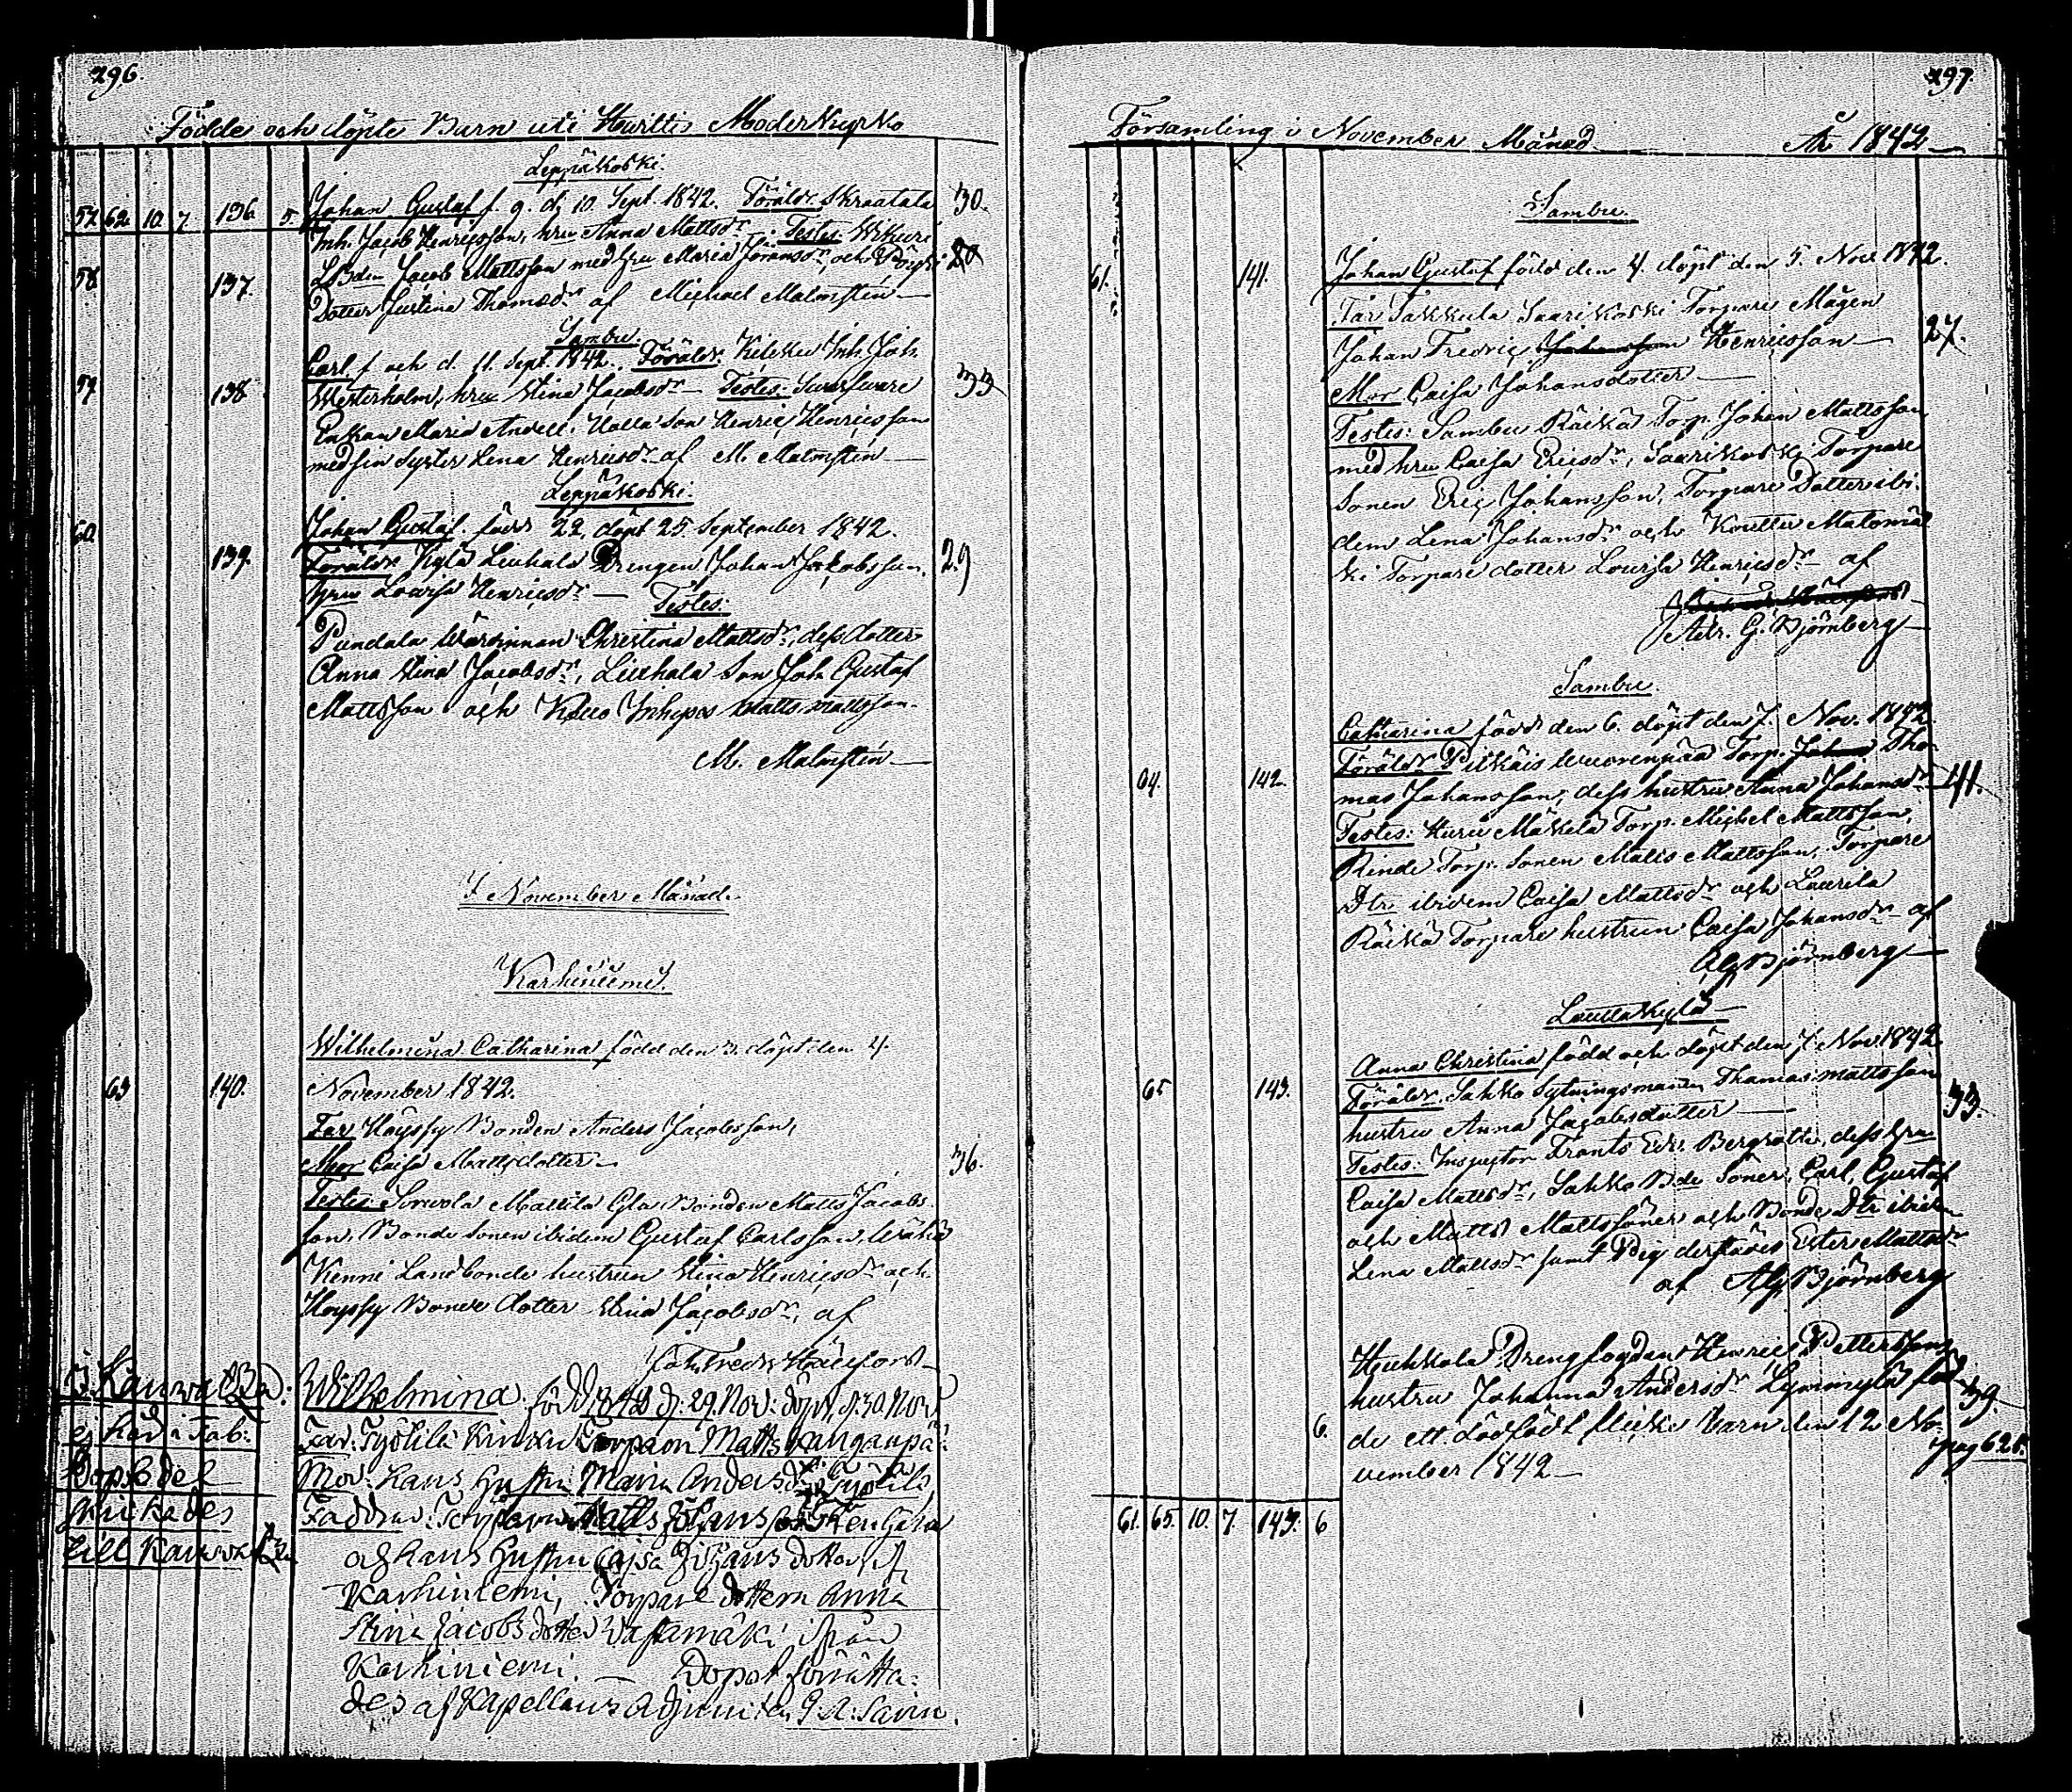 296.
Födde och döpte Barn uti Huittis Moderkyrko
Leppäkoski.
57. 62. 10. 7. 136. 5. Johan Gustaf f. 9. d. 10. Sept. 1842. Föräldr. Skraatala 30.
Inh. Jacob Henricsson, hru Anna Mattsdr. Testes:
58. 137. Jacob Mattsson med hru Maria och
Dotter Justina Thomasdr. af Michael Malmstén
Sambu.
Carl f. och d. 11. Sept. 1842. Föräldr. Inh. Joh.
59. 138. Westerholm, hru Stina Jacobsdr. Testes: 33
Enkan Maria Andell. Ualla Son Henric Henricsson
med sin Syster Lena Henricsdr. af M. Malmstén
Leppäkoski.
60. Johan Gustaf. född 22, döpt 25 September 1842.
139. Föräldr. Kylä Liuhala Drengen Johan Jakobsson. 29
hru Lovisa Henricsdr. Testes:
Pundala Wärdinnan Christina Mattsdr, dess dotter
Anna Stina Jacobsdr, Liuhala Son Joh. Gustaf
Mattsson och Inhyses Matts Mattsson.
M. Malmstén
I November Månad.
Karhiniemi.
Wilhelmina Catharina född den 3. döpt den 4.
63 140. November 1842.
Far Höyssy Bonden Anders Jacobsson,
Mor Caisa Mattsdotter 36.
Testes: Sorvola Mattila Gla Bonden Matts Jacobs
son, Bonde Sonen ibidem Gustaf Carlsson,
Kenni Landbonde hustrun Stina Henricsdr och
Höyssy Bonde dotter Stina Jacobsdr, af
Joh. Fredr. Hällfors
Kauvatsa: Wilhelmina född 1842 d: 29 Nov: döpt d: 30 Nov
ej hed i Tab: Far: Työtilä Torparn Matts
Mor: hans hustru Maria Andersdr
skickades Faddrar: Torparn Matts Johansson
till Kauvatsa och hans hustru Cajsa Johans dotter
Karhiniemi, Torpare dottern Anna
Stina Jacobs dotter Wastamäki ifrån
Karhiniemi. Dopet förrätta:
des af Kapellans Adjuncten G. A. Savin.
297.
Församling i November Månad År 1842
Sambu.
61. 141. Johan Gustaf född den 4. döpt den 5. Nov. 1842.
Far Takkula Saarikoski Torpare Mågen
Johan Fredric Johansson Henricsson 27.
Mor Caisa Johansdotter
Testes: Sambu Räikä Torp. Johan Mattsson
med hru Caisa Ericsdr, Saarikoski Torpare
Sonen Eric Johansson, Torpare Dotter ibi-
dem Lena Johansdr och
ki Torpare dotter Lovisa Henricsdr af
Adr. G. Björnberg
Sambu.
Catharina född den 6. döpt den 7. Nov. 1842.
Föräldr. Pitkäis Wuorenpää Torp. Johan Tho-
64. 142. mas Johansson, dess hustru Anna Johansdr 41.
Testes: Huru Mäkelä Torp. Michel Mattsson,
Rinde Torp. Sonen Matts Mattsson, Torpare
Dtr ibidem Caisa Mattsdr och Laurila
Räikä Torpare hustrun Caisa Johansdr af
AG Björnberg
Lauttakylä
Anna Christina född och döpt den 7. Nov. 1842
65 143. Föräldr. Sakko Sytningsmannen Thomas Mattsson
hustru Anna Jacobsdotter 33.
Testes: Inspector Frants Edv. Bergroth, dess hru
Caisa Mattsdr, Sakko Bde Söner, Carl, Gustaf
och Matts Mattssöner och Bonde Dtr ibidem
Lena Mattsdr samt Pig derstädes Ester Mattsdr
af AG Björnberg
Huhkola Drengfogden Henric Pettersson
hustru Johanna Andersdr föd- 39.
6. de ett dödfödt flicke barn den 12 No- pag 628.
vember 1842
61. 65. 10. 7. 143. 6